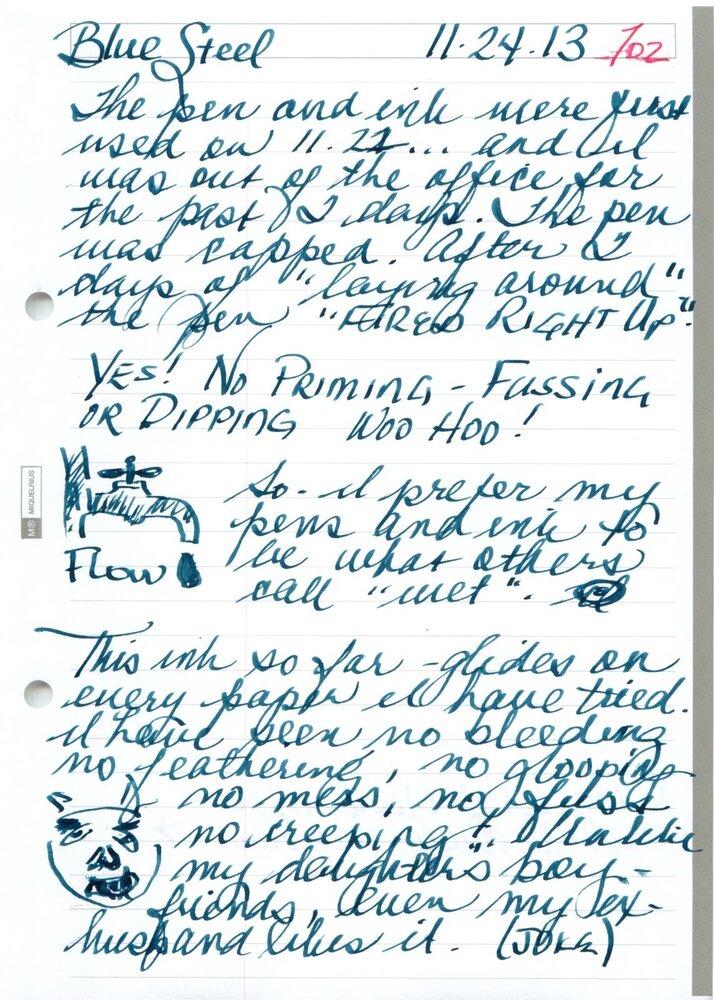 Blue Steel 11.24.13 702
The pen and ink were first
used on 11.22... and I
was out of the office for
the past 2 days. The pen
was capped. After 2
days of "laying around"
the pen "FIRED RIGHT UP".
YES! NO PRIMING - FUSSING
OR DIPPING WOO HOO!
So - I prefer my
pens and ink to
be what others
call "wet".
Flow
MIQUELRIUS
This ink so far - glides on
every paper I have tried.
I have seen no bleeding
no feathering, no glooping
no mess, no fuss
no creeping". Unlike
my daughters boy-
friends, even my ex-
husband likes it. (JOKE)